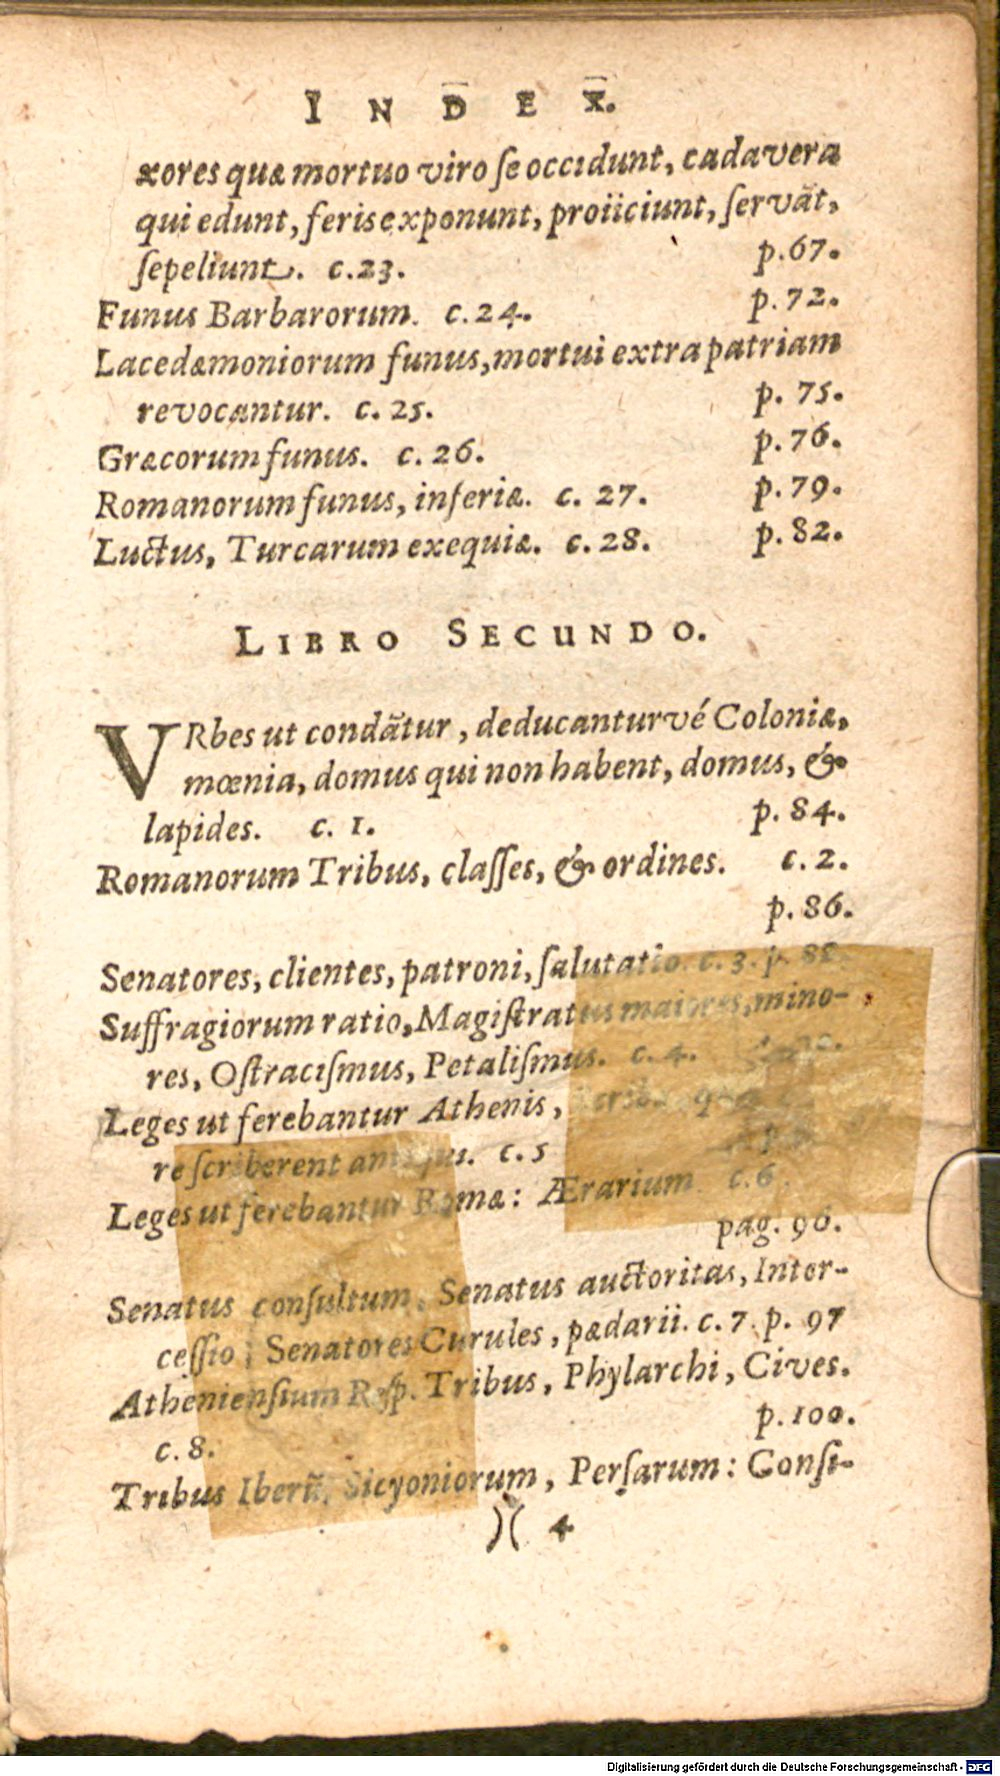 INDEX.
xores quæ mortuo viro se occidunt, cadavera
qui edunt, feris exponunt, proiiciunt, servāt,
sepeliunt. c.23. p.67.
Funus Barbarorum. c.24. p.72.
Lacedæmoniorum funus, mortui extra patriam
revocantur. c.25. p. 75.
Græcorum funus. c.26. p.76.
Romanorum funus, inferiæ. c. 27. p.79.
Luctus, Turcarum exequiæ. c.28. p.82.
LIBRO SECUNDO.
VRbes ut condātur, deducantur vé Coloniæ,
mœnia, domus qui non habent, domus, &
lapides. c. 1. p.84.
Romanorum Tribus, classes, & ordines. c.2.
p.86.
Senatores, clientes, patroni, salutatio. c.3. p. 88.
Suffragiorum ratio, Magistratus maiores, mino-
res, Ostracismus, Petalismus. c.4.
Leges ut ferebantur Athenis,
re scriberent antiqui. c.5
Leges ut ferebantur Romæ: Ærarium c.6.
pag. 96.
Senatus consultum, Senatus auctoritas, Inter-
cessio; Senatores Curules, pædarii. c.7. p. 97
Atheniensium Resp. Tribus, Phylarchi, Cives.
c.8. p.100.
Tribus Iberū, Sicyoniorum, Persarum: Consi-
)( 4
Digitalisierung gefördert durch die Deutsche Forschungsgemeinschaft - DFG